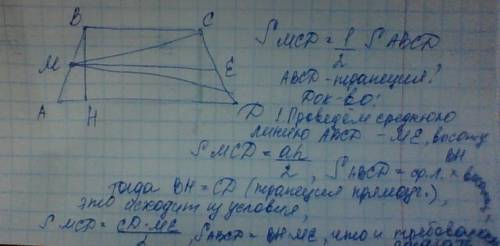 B
C
M
E
A
H
D
S MCD = 1/2 S ABCD
ABCD - трапеция?
Док-во:
1 Проведем среднюю
линию ABCD - ME, высоту
BH
S MCD = ah/2, S ABCD = ср.л. × высоту,
тогда BH = CD (трапеция прямоуг.),
это исходит из условия,
S MCD = CD·ME/2, S ABCD = BH·ME, что и